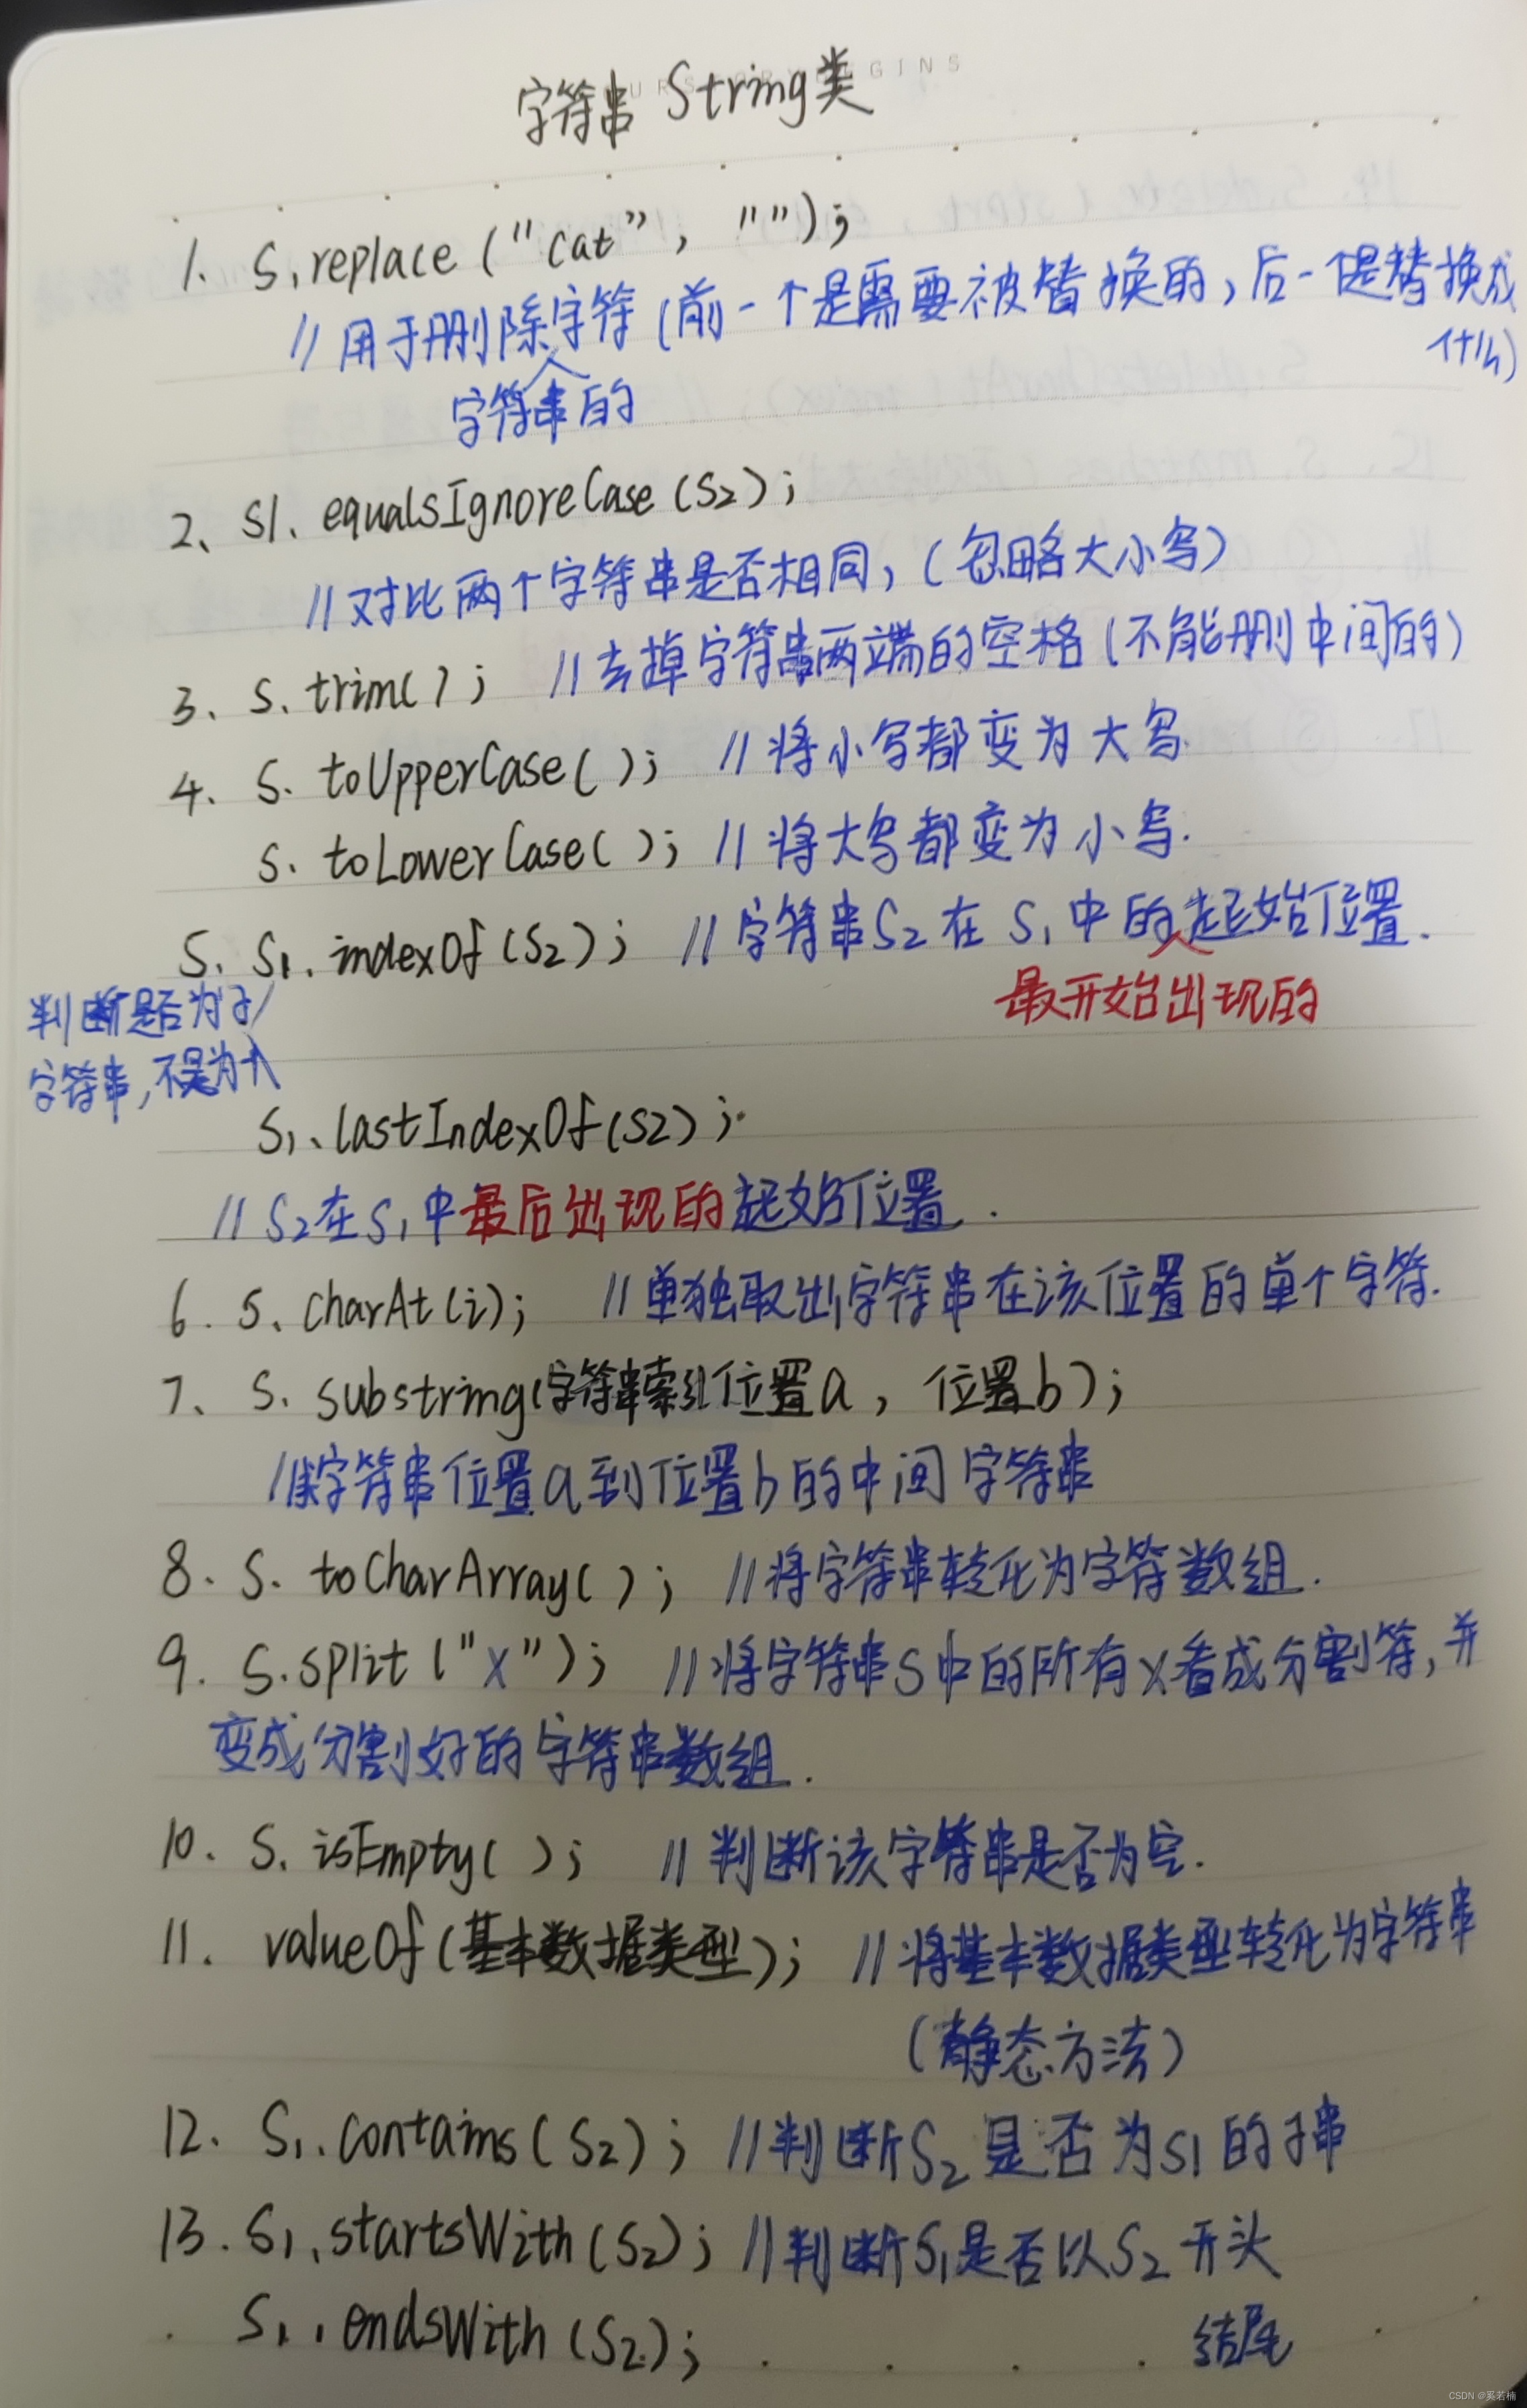 字符串 String类
1. S.replace("cat", "");
//用于删除字符(前一个是需要被替换的,后一个是替换成
什么)
字符串的
2、S1. equalsIgnoreCase(S2);
//对比两个字符串是否相同,(忽略大小写)
3、S. trim(); //去掉字符串两端的空格(不能删中间的)
4、S. toUpperCase(); //将小写都变为大写.
S. toLowerCase(); //将大写都变为小写.
5. S1. indexOf(S2); //字符串S2在S1中的起始位置.
最开始出现的
判断是否为子
字符串,不是为
S1、lastIndexOf(S2);
//S2在S1中最后出现的起始位置.
6. S. charAt(i); //单独取出字符串在该位置的单个字符.
7、S. substring(字符串索引位置a, 位置b);
//字符串位置a到位置b的中间字符串
8. S. toCharArray(); //将字符串转化为字符数组.
9. S.split("X"); //将字符串S中的所有X看成分割符,并
变成分割好的字符串数组.
10. S. isEmpty(); //判断该字符串是否为空.
11. valueOf(基本数据类型); //将基本数据类型转化为字符串
(静态方法)
12. S1.contains(S2); //判断S2是否为S1的子串
13. S1.startsWith(S2); //判断S1是否以S2开头
S1.endsWith(S2); 结尾
CSDN @奚若楠